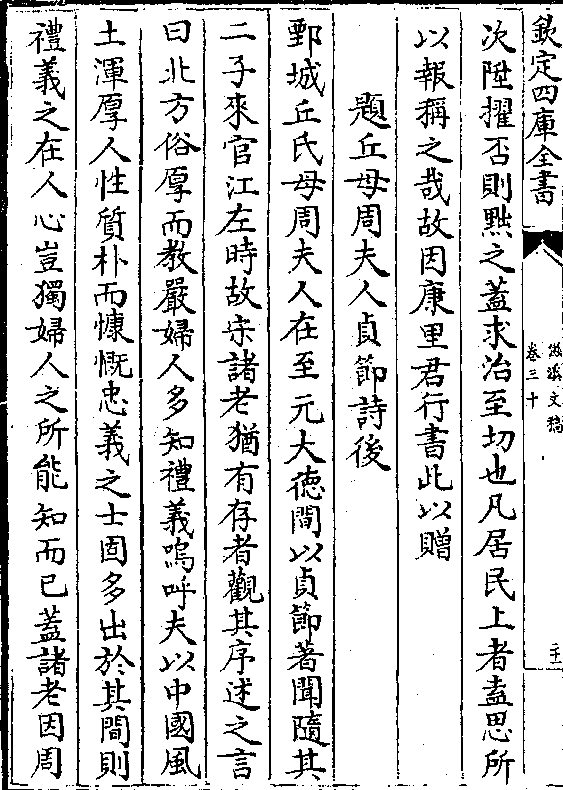 欽定四庫全書
滋溪文稿
卷三十
二十一
次陞擢否則黜之蓋求治至切也凡居民上者盍思所
以報稱之哉故因康里君行書此以贈
題丘母周夫人貞節詩後
鄄城丘氏母周夫人在至元大徳間以貞節著聞隨其
二子來官江左時故宋諸老猶有存者觀其序述之言
曰北方俗厚而教嚴婦人多知禮義嗚呼夫以中國風
土渾厚人性質朴而慷慨忠義之士固多出於其間則
禮義之在人心豈獨婦人之所能知而已蓋諸老因周